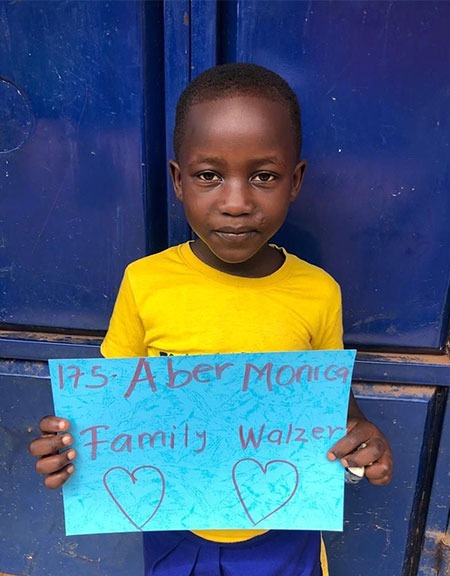 175. Aber Monica
Family Walzer